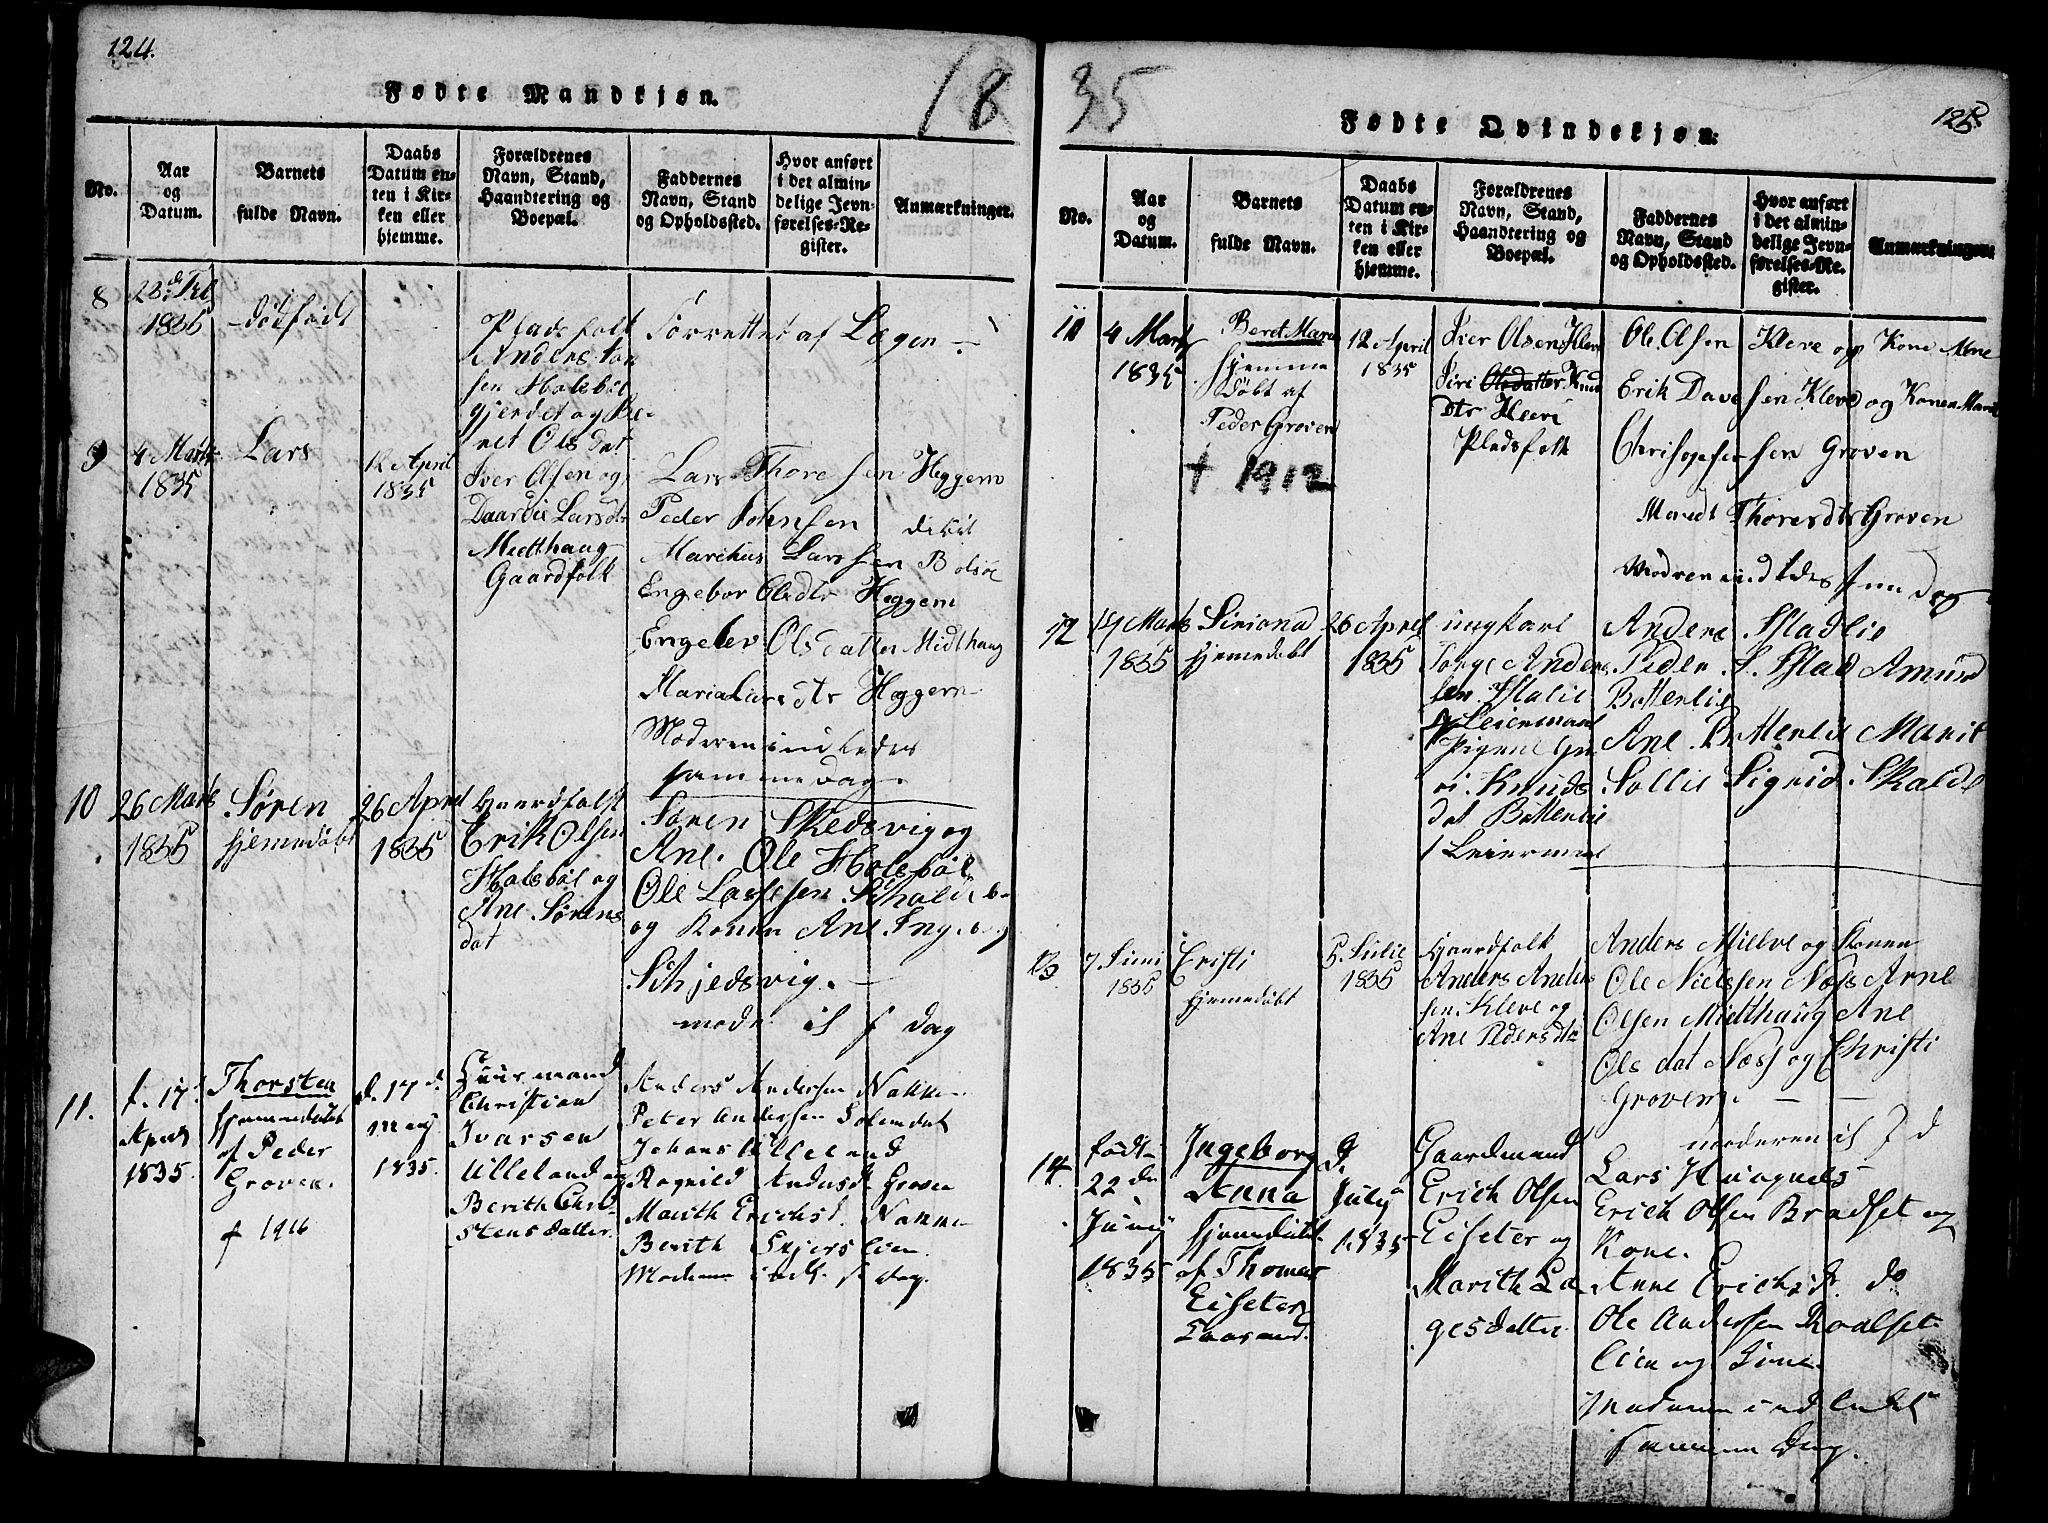 124.
18
Fødte Mandkjøn.
No.
Aar
og
Datum.
Barnets
fulde Navn.
Daabs
Datum en-
ten i Kir-
ken eller
hjemme.
Forældrenes
Navn, Stand,
Haandtering og
Boepæl.
Faddernes
Navn, Stand
og Opholdssted.
Hvor anført
i det almin-
delige Jevn-
førelses-Re-
gister.
Anmærkninger.
8
1835
dødfødt
Pladsfolk
Anders
sen Holsböe
gjerdet og Be-
ret Olsdat
af Lægen
9
4 Marts
1835
Lars
12 April
1835
Iver Olsen og
Larsdtr
Midthaug
Gaardfolk
Lars Thoresen Heggem
Peder Johnsen
Marekus Larssen Bolsöe
Engebor Olsdtr Heggem
Engelev Olsdatter Midthaug
Maria Larsdtr Heggem
Moderen indledes
samme dag
10
26 Marts
1835
Søren
hjemedøbt
26 April
1835
Gaardfolk
Erik Olsen
Holsböe og
Ane Sörens
dat
Søren Skedsvig og
Ane. Ole Holsböe
Ole Lassesen
og Konen Ane
Schjedsvig.
dag
11.
f. 17
April
1835.
Thorsten
hjemmedöbt
af Peder
Groven.
† 1916
d. 17 d.
May
1835.
Huusmand
Christian
Ivarsen
Ulleland og
Berith Chri-
stensdatter.
Anders Andersen
Peter Andersen Solemdal
Johans Ulleland
Ragnild Andersd. Groven
Marith Erichsd.
Berith
Moderen indl. s. dag.
125
35
Fødte Qvindekjøn.
No.
Aar
og
Datum.
Barnets
fulde Navn.
Daabs
Datum en-
ten i Kir-
ken eller
hjemme.
Forældrenes
Navn, Stand,
Haandtering og
Boepæl.
Faddernes
Navn, Stand
og Opholdssted.
Hvor anført
i det almin-
delige Jevn-
førelses-Re-
gister.
Anmærkninger.
11
4 Marts
1835
Beret Maria
hjemme
döbt af
Peder Groven
† 1912
12 April
1835
Iver Olsen Kleve
Siri Olsdatter Knud
dtr Kleve
Pladsfolk
Ole Olsen Kleve og Kone Ane
Erik Davesen Kleve og Konen Marit
Groven
Maredt Thoresdtr Groven
Modren indledes samme dag
12
19 Marts
1835
hjemedøbt
26 April
1835
ungkarl
Anders
sen Stalie
Leiermaal
Pigene Gu
ri Knuds
dat Bottenlie
1 Leiermaal
Anders Stadlie
Peder S. Stad Amund
Bottenlie
Ane Bottenlie Marit
Sollie Sigrid Skalle
13
7. Juni
1835
Cristi
hjemedøbt
5. Julie
1835
Gaardfolk
Anders Anders
sen Kleve og
Ane Pedersdat
Anders Mielve og Konen
Ole Nielssen Næss Arne
Olsen Midthaug Ane
Olsdat Næss og Christi
Groven. — —
moderen i s d
14.
född
22 de
Juny
1835
Ingeborg
Anna
hjemedöbt
af Thomas
Eiseter
Gaarmd.
d.
July
1835
Gaardmand
Erich Olsen
Eiseter og
Marith La
gesdatter
Lars
Erich Olsen Bradset og
Kone.
Anne Erichsd. do
Ole Andersen Roalset-
lien og Kone
Moderen indledet
samme Dag.